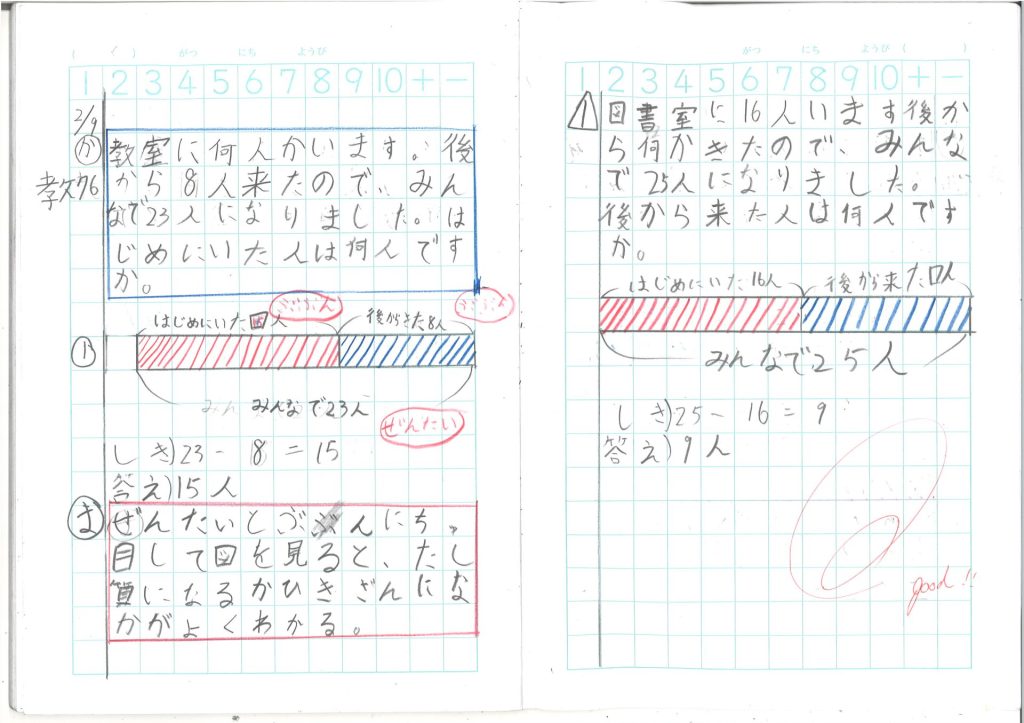 ( / ) がつ にち ようび
1 2 3 4 5 6 7 8 9 10 + −
2/9
か
教室に何人かいます。後
孝攵 76
から8人来たので、みん
なで23人になりました。は
じめにいた人は何人です
か。
ぶぶん
ぶぶん
はじめにいた□人
後からきた8人
1)
みんなで23人
ぜんたい
しき)23-8=15
答え)15人
ま
ぜんたいとぶぶんにち。
目して図を見ると、たし
算になるかひきざんにな
かがよくわかる。
がつ にち ようび ( )
1 2 3 4 5 6 7 8 9 10 + −
1
図書室に16人います後か
ら何かきたので、みんな
で25人になりきした。
後から来た人は何人です
か。
はじめにいた16人
後から来た□人
みんなで25人
しき)25-16=9
答え)9人
good!!